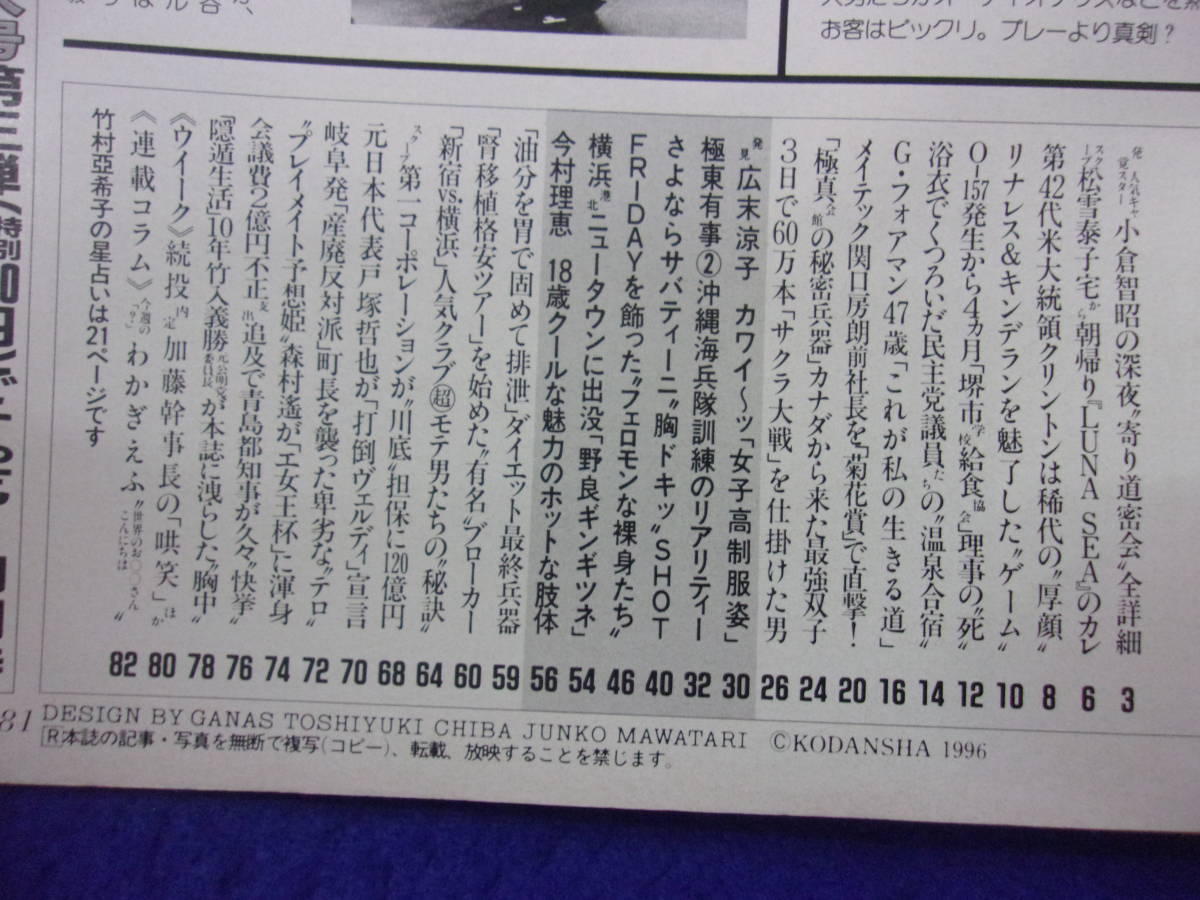 お客はビックリ。プレーより真剣?
発覚 人気キャスター 小倉智昭の深夜“寄り道密会”全詳細 3
スクープ 松雪泰子宅から朝帰り『LUNA SEA』のカレ 6
第42代米大統領クリントンは稀代の“厚顔” 8
リナレス&キンデランを魅了した“ゲーム” 10
O-157発生から4ヵ月「堺市学校給食協会」理事の“死” 12
浴衣でくつろいだ民主党議員たちの“温泉合宿” 14
G・フォアマン47歳「これが私の生きる道」 16
メイテック関口房朗前社長を「菊花賞」で直撃! 20
「極真会館の秘密兵器」カナダから来た最強双子 24
3日で60万本「サクラ大戦」を仕掛けた男 26
発見 広末涼子 カワイ〜ッ「女子高制服姿」 30
極東有事②沖縄海兵隊訓練のリアリティー 32
さよならサバティーニ“胸ドキッ”SHOT 40
FRIDAYを飾った“フェロモンな裸身たち” 46
横浜港北ニュータウンに出没「野良ギンギツネ」 54
今村理恵 18歳クールな魅力のホットな肢体 56
「油分を胃で固めて排泄」ダイエット最終兵器 59
「腎移植格安ツアー」を始めた“有名”ブローカー 60
「新宿vs.横浜」人気クラブ超モテ男たちの“秘訣” 64
スクープ 第一コーポレーションが“川底”担保に120億円 68
元日本代表戸塚哲也が「打倒ヴェルディ」宣言 70
岐阜発「産廃反対派」町長を襲った卑劣な“テロ” 72
“プレイメイト予想姫”森村遙が「エ女王杯」に渾身 74
会議費2億円不正支出追及で青島都知事が久々“快挙” 76
「隠遁生活」10年竹入義勝元公明党委員長が本誌に洩らした“胸中” 78
《ウイーク》続投内定加藤幹事長の「哄笑」ほか 80
《連載コラム》今週の「?」わかぎえふ“世界のお○○さんこんにちは” 82
竹村亞希子の星占いは21ページです
81
DESIGN BY GANAS TOSHIYUKI CHIBA JUNKO MAWATARI ©KODANSHA 1996
R本誌の記事・写真を無断で複写(コピー)、転載、放映することを禁じます。